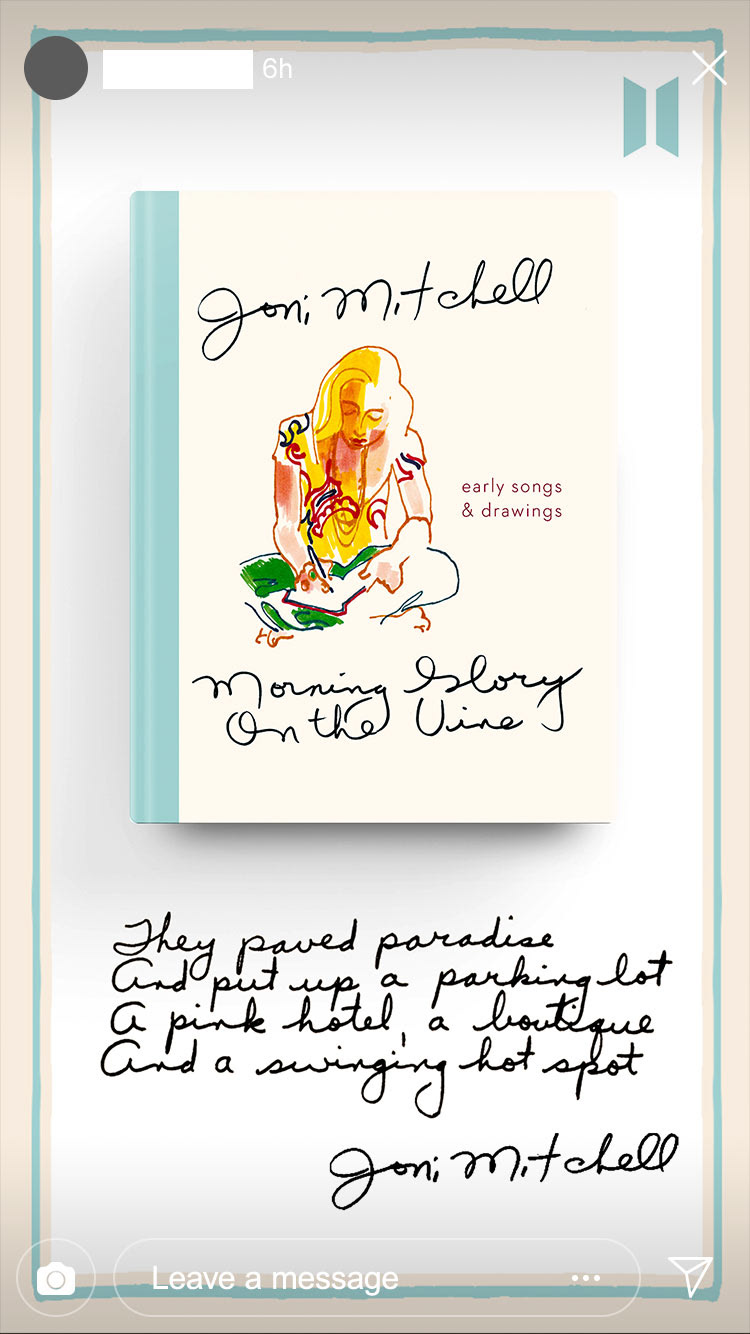 6h
Joni Mitchell
early songs
& drawings
Morning Glory
On the Vine
They paved paradise
And put up a parking lot
A pink hotel, a boutique
And a swinging hot spot
Joni Mitchell
Leave a message